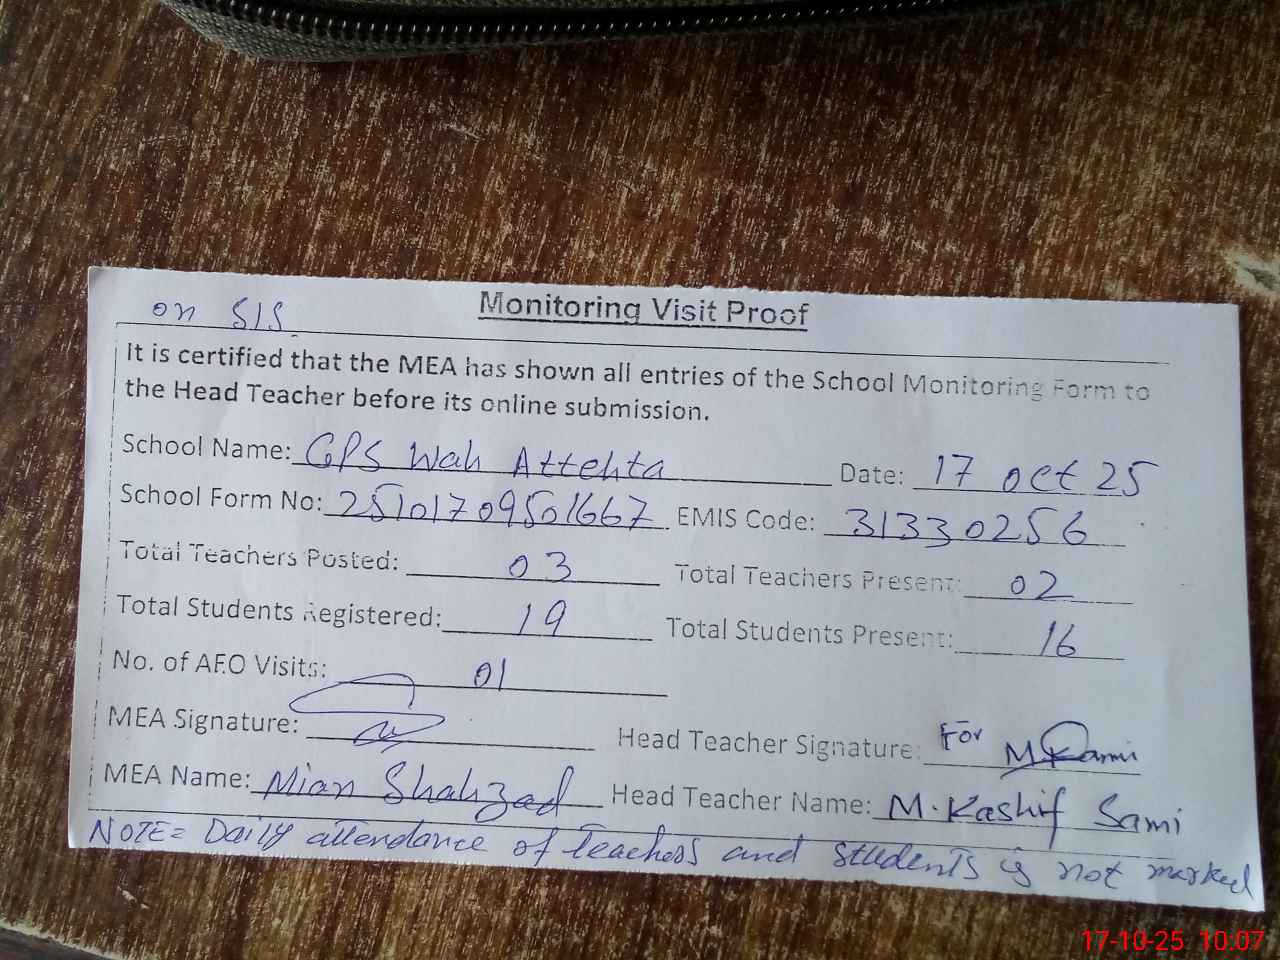 on SIS
Monitoring Visit Proof
It is certified that the MEA has shown all entries of the School Monitoring Form to
the Head Teacher before its online submission.
School Name: GPS Wah Attehta Date: 17 oct 25
School Form No: 25101709501667 EMIS Code: 31330256
Total Teachers Posted: 03 Total Teachers Present: 02
Total Students Registered: 19 Total Students Present: 16
No. of AEO Visits: 01
MEA Signature: Head Teacher Signature: For M Sami
MEA Name: Mian Shahzad Head Teacher Name: M. Kashif Sami
NOTE= Daily attendance of teachers and students is not marked
17-10-25 10:07